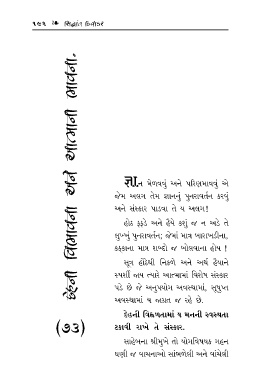 ૧૯૬ ❧ સિદ્ધાંત દિવાકર
દેહની વિભાવની અને આત્માની ભાવની.
(૭૩)
જ્ઞાન મેળવવું અને પરિણમાવવું એ
જેમ અલગ તેમ જ્ઞાનનું પુનરાવર્તન કરવું
અને સંસ્કાર પાડવા તે ય અલગ!
હોઠ ફફડે અને હૈયે કશું જ ન અડે તે
લુખ્ખું પુનરાવર્તન; જેમાં માત્ર બારાખડીના,
કક્કાના માત્ર શબ્દો જ બોલવાના હોય !
સૂત્ર હોંઠેથી નિકળે અને અર્થ હૈયાને
સ્પર્શી જાય ત્યારે આત્મામાં વિશેષ સંસ્કાર
પડે છે જે અનુપયોગ અવસ્થામાં, સુષુપ્ત
અવસ્થામાં ય જાગ્રત જ રહે છે.
દેહની વિહ્વળતામાં ય મનની સ્વસ્થતા
ટકાવી રાખે તે સંસ્કાર.
સાહેબના શ્રીમુખે તો યોગવિષયક ગહન
ઘણી જ વાચનાઓ સાંભળેલી અને વાંચેલી